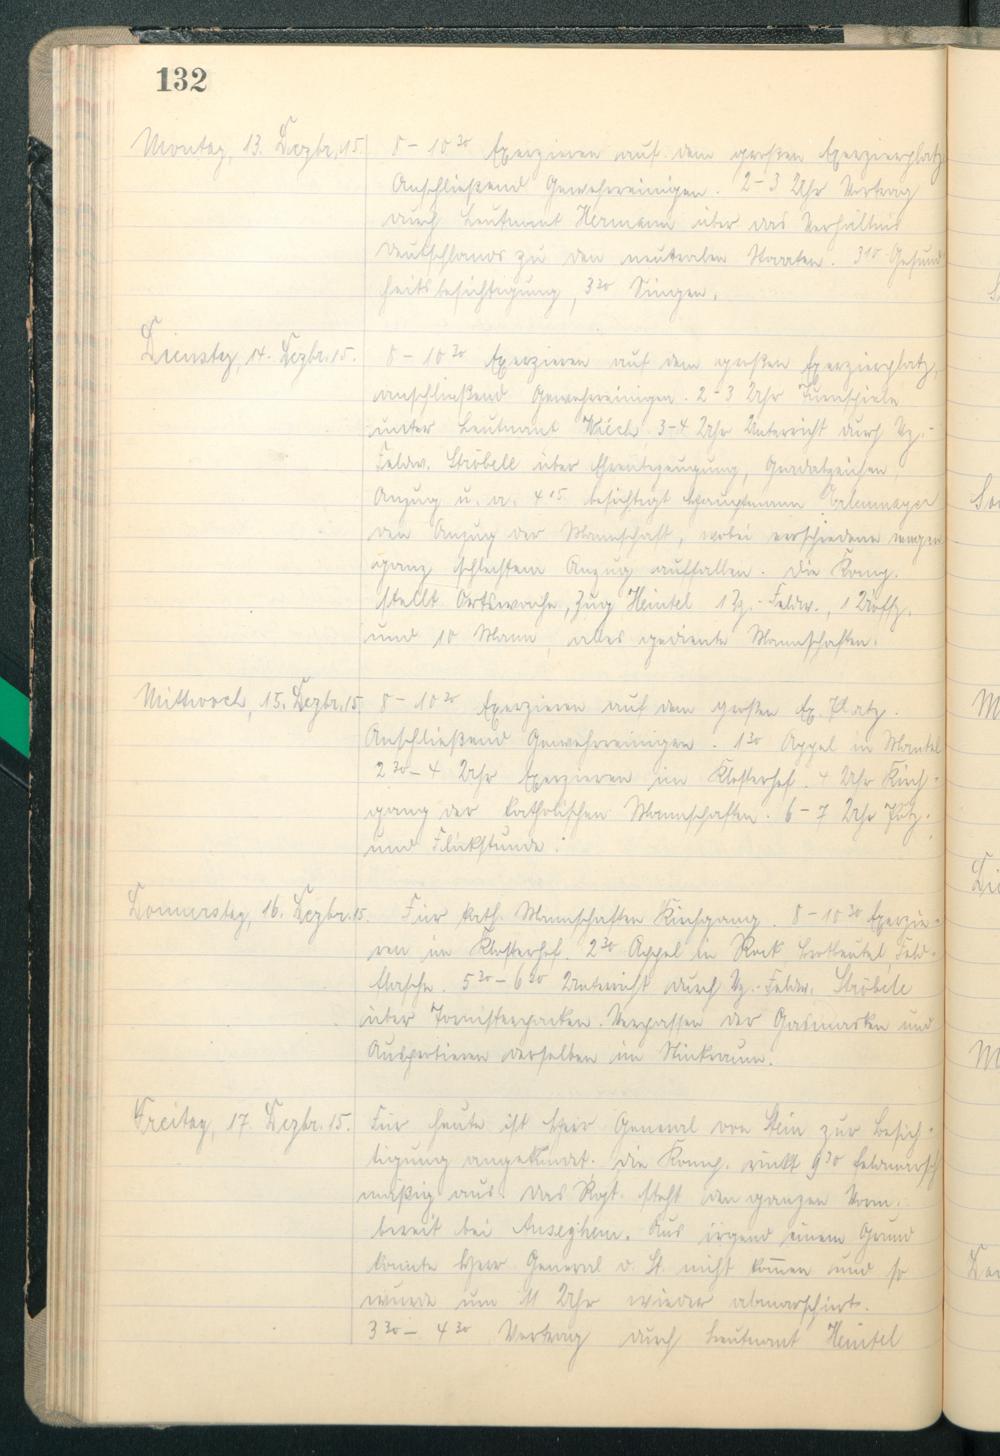 132
Montag, 13. Dezbr. 15. 8 – 10 30 Exerzieren auf dem großen Exerzierplatz
Anschließend Gewehrreinigen. 2 – 3 Uhr Vortrag
durch Leutnant Hermann über das Verhältnis
Deutschlands zu den neutralen Staaten. 3 10 Gesund
heitsbesichtigung, 3 30 Singen.
Dienstag, 14. Dezbr. 15. 8 – 10 30 Exerzieren auf dem großen Exerzierplatz,
anschließend Gewehrreinigen. 2 – 3 Uhr Turnspiele
unter Leutnant 3 – 4 Uhr Unterricht durch Vz.-
Feldw. Ströbele über Ehrenbezeugung, Gradabzeichen,
Anzug u. a. 4 15 besichtigt Hauptmann
den Anzug der Mannschaft, wobei verschiedene wegen
ganz schlechtem Anzug auffallen. Die Komp.
stellt Ortswache, Zug Heintel 1 Vz.-Feldw., 1 Uoffz.
und 10 Mann, alles gediente Mannschaften.
Mittwoch, 15. Dezbr. 15. 8 – 10 30 Exerzieren auf dem großen Ex. Platz.
Anschließend Gewehrreinigen. 1 30 Appel in Mantel
2 30 – 4 Uhr Exerzieren im Klosterhof. 4 Uhr Kirch-
gang der katholischen Mannschaften. 6 – 7 Uhr Putz-
und Flickstunde.
Donnerstag, 16. Dezbr. 15. Für kath. Mannschaften Kirchgang. 8 – 10 30 Exerzie-
ren im Klosterhof. 2 30 Appel in Rock, Brotbeutel, Feld-
flasche. 5 30 – 6 30 Unterricht durch Vz.-Feldw. Ströbele
über Tornisterpacken. Verpassen der Gasmasken und
Ausprobieren derselben im Stinkraum.
Freitag, 17. Dezbr. 15. Für heute ist Herr General von Stein zur Besich-
tigung angekündet. Die Komp. rückt 9 30 feldmarsch
mäßig aus. Das Rgt. steht den ganzen Vorm.
bereit bei Anseghem. Aus irgend einem Grund
konnte Herr General v. St. nicht kommen und so
wurde um 11 Uhr wieder abmarschiert.
3 30 – 4 30 Vortrag durch Leutnant Heintel